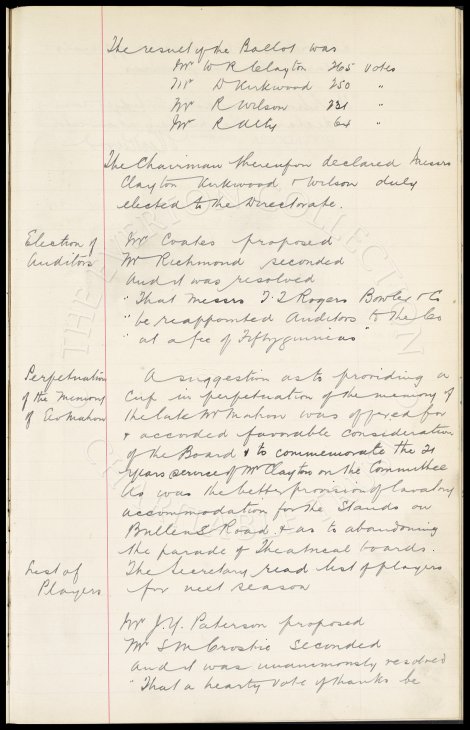 The result of the Ballot was
Mr W R Clayton 265 votes
Mr D Kirkwood 250 "
Mr R Wilson 231 "
Mr R Alty 64 "
The Chairman thereupon declared Messrs
Clayton Kirkwood & Wilson duly
elected to the Directorate.
Election of
Auditors
Mr Coates proposed
Mr Richmond seconded
And it was resolved
"That Messrs Rogers Bowler & Co
"be reappointed Auditors to the Co
"at a fee of Fifty guineas"
Perpetuation
of the Memory
of Mahon
A suggestion as to providing a
Cup in perpetuation of the memory of
the late Mr Mahon was offered for
& accorded favorable consideration
of the Board & to commemorate the 21
years service of Mr Clayton on the Committee
As was the better provision of lavatory
accommodation for the Stands on
Bullens Road & as to abandoning
the parade of Theatrical boards.
List of
Players
The Secretary read list of players
for next season
Mr J.Y. Paterson proposed
Mr S M Crostie Seconded
And it was unanimously resolved
"That a hearty Vote of thanks be
THE EVERTON COLLECTION